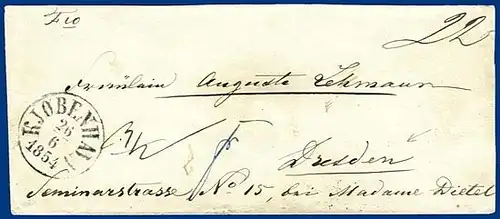 Fco
22
Fräulein Auguste Lehmann
KJOBENHAV
26
6
1854
Dresden
Seminarstrasse No 15, bei Madame Dietel